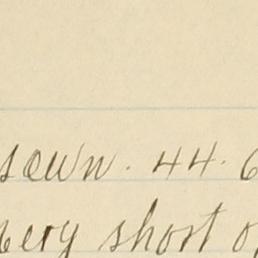 sown. 44. 6
very short o